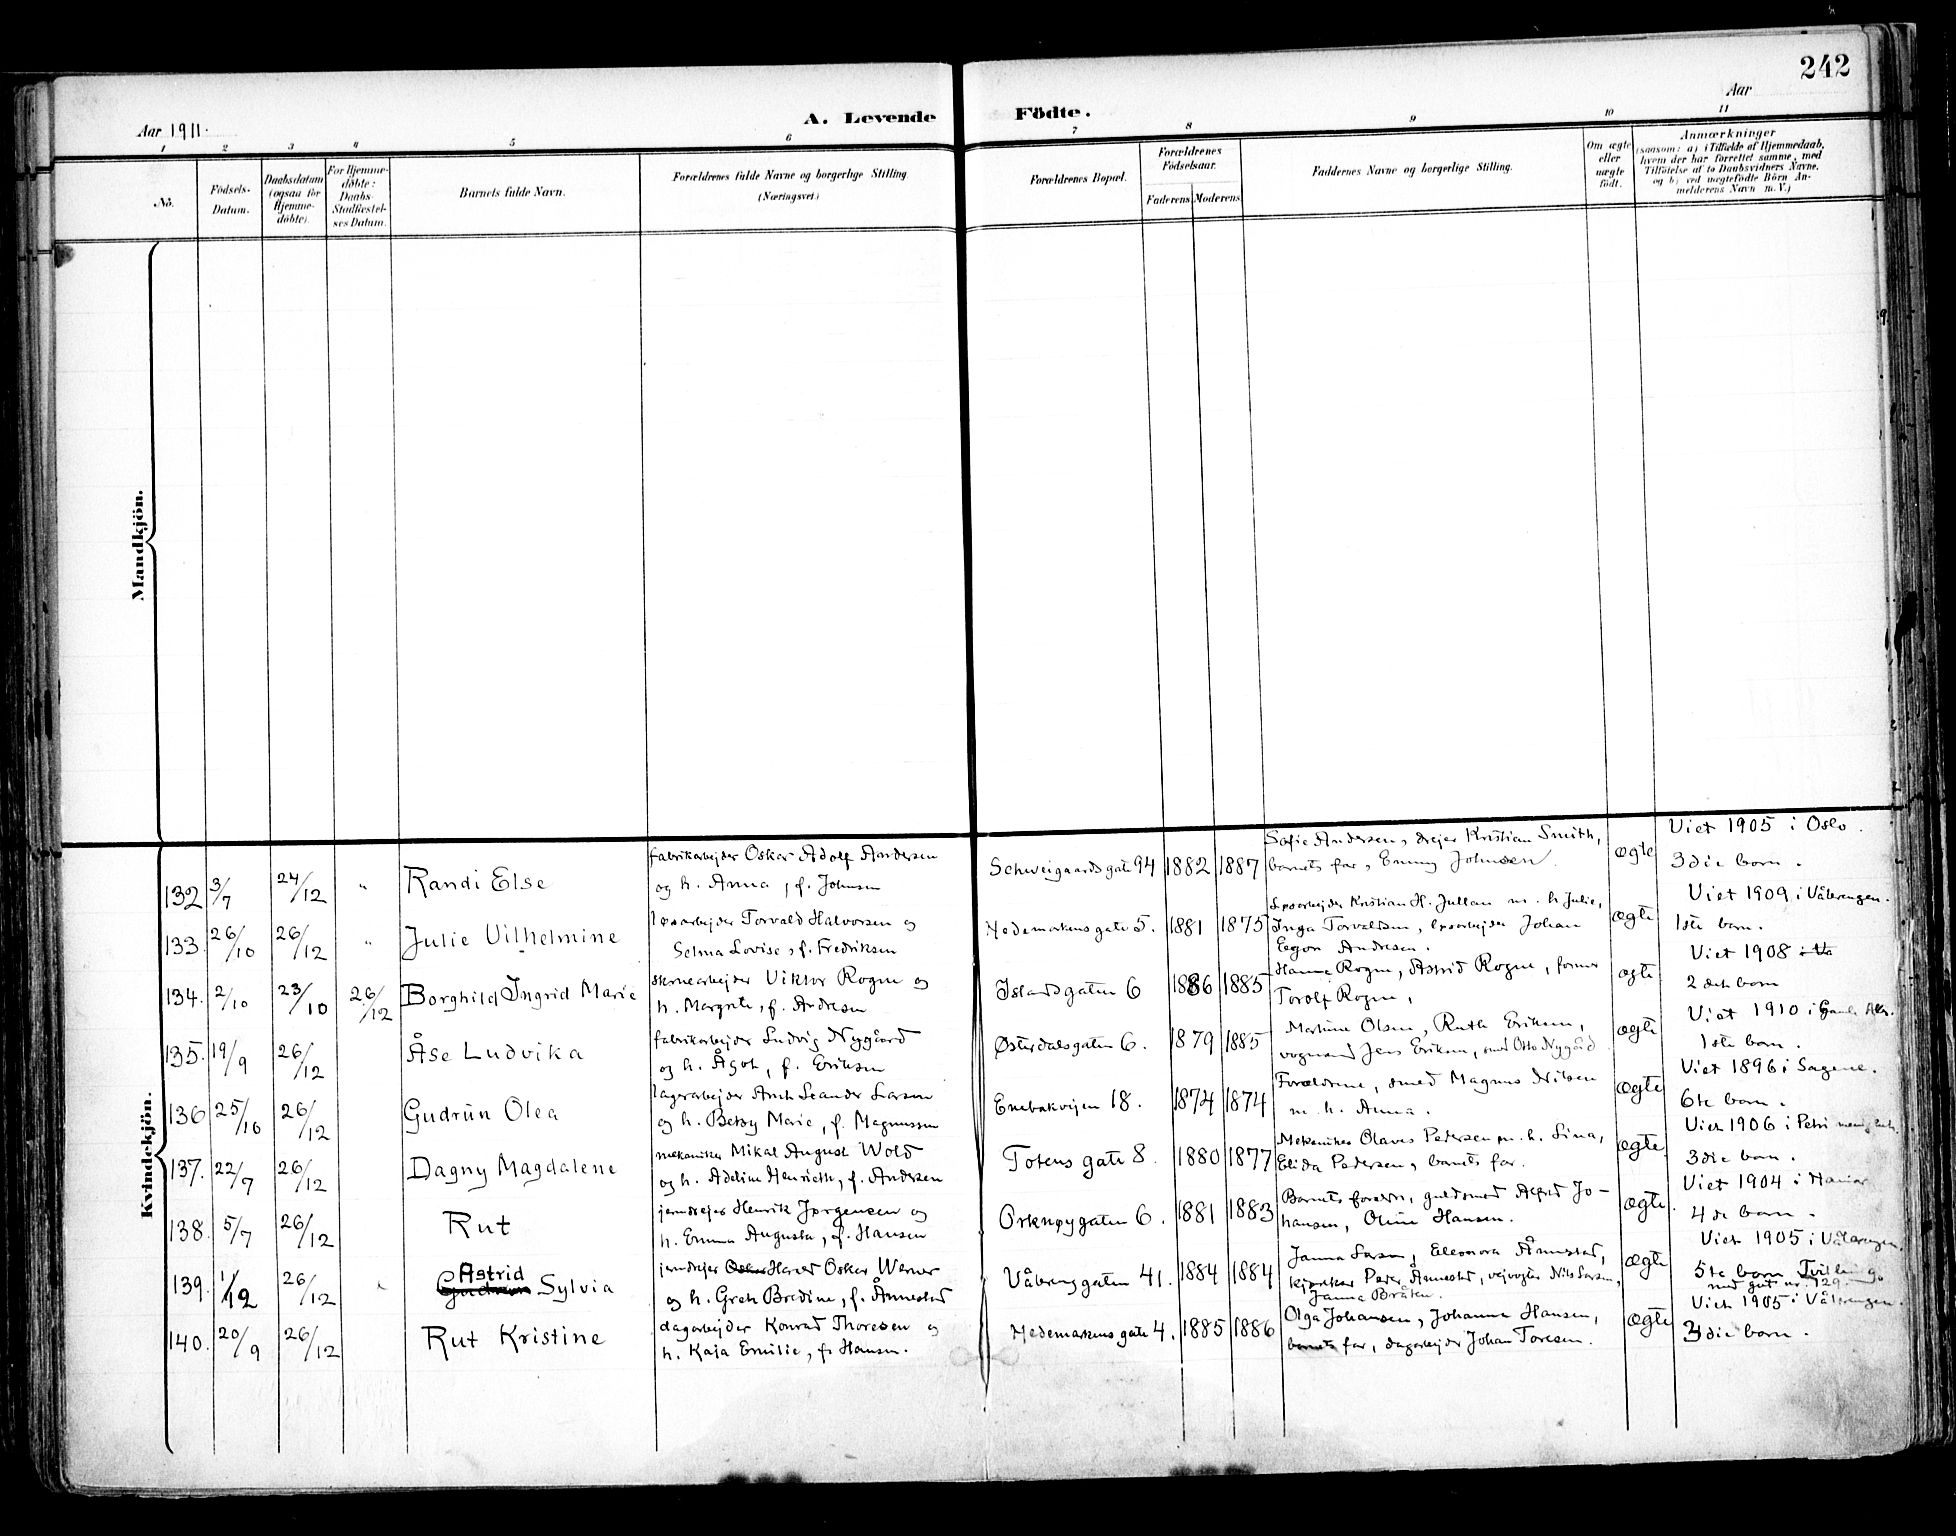 242
Aar 1911.
A. Levende Födte.
Aar
1 2 3 4 5 6 7 8 9 10 11
No.
Födsels-Datum.
Daabsdatum (ogsaa for Hjemme-döbte).
For Hjemme-døbte: Daabs-Stadfæstel-ses Datum.
Barnets fulde Navn.
Forældrenes fulde Navne og borgerlige Stilling
(Næringsvei.)
Forældrenes Bopæl.
Forældrenes Födselsaar.
Faderens Moderens
Faddernes Navne og borgerlige Stilling.
Om ægte eller uægte født.
Anmærkninger
(saasom: a) i Tilfælde af Hjemmedaab, hvem der har forrettet samme, med Tilføielse af to Daabsvidners Navne, og b) ved uægtefödte Börn An-melderens Navn m. V.)
Mandkjön.
Kvindekjön.
132 3/7 24/12 " Randi Else
fabrikarbejder Oskar Adolf Andersen
og h. Anna, f. Johnsen
Schweigaardsgate 94 1882 1887
Sofie Andersen, drejer Kristian Smith,
barnets far, Emmy Johnsen.
ægte
Viet 1905 i Oslo.
3die barn.
133. 26/10 26/12 " Julie Vilhelmine
løsarbejder Torvald Halvorsen og
Selma Lovise, f. Fredriksen
Hedemarkens gate 5. 1881 1875
Løsarbejder Kristian H. Jullam m. h. Julie,
Inga Torvaldsen, løsarbejder Johan
Andresen.
ægte
Viet 1909 i Vålerengen.
1ste barn.
134. 2/10 23/10 26/12 Borghild Ingrid Marie
skoearbejder Viktor Rogne og
h. Margrete, f. Andresen
Islandsgaten 6 1886 1885
Hanna Rogne, Astrid Rogne, former
Torolf Rogne,
ægte
Viet 1908 i Va
2 det barn
135. 19/9 26/12 Åse Ludvika
fabrikarbejder Ludvig Nygård
og h. Ågot, f. Eriksen
Østerdalsgaten 6. 1879 1885
Martine Olsen, Ruth Eriksen,
vognmand Jens Eriksen, smed Otto Nygård
ægte
Viet 1910 i Gamle Aker.
1ste barn.
136 25/10 26/12 Gudrun Olea
lagerarbejder Leander Larsen
og h. Betsy Marie, f. Magnussen
Enebakvejen 18. 1874 1874
Forældrene, smed Magnus Nilsen
m. h. Anna.
ægte
Viet 1896 i Sagene.
6te barn.
137. 22/9 26/12 Dagny Magdalene
mekaniker Mikal August Wold
og h. Adeline Henriette, f. Andersen
Totens gate 8. 1880 1877
Mekaniker Olaves Pedersen m. h. Lina,
Elida Pedersen, barnets far.
ægte
Viet 1906 i Petri menighet.
3die barn.
138. 5/7 26/12 Rut
jerndrejer Henrik Jørgensen og
h. Emma Augusta, f. Hansen
Orknøygaten 6. 1881 1883
Barnets foreldre, guldsmed Alfred Jo-
hansen, Oline Hansen.
ægte.
Viet 1904 i Hamar
4de barn.
139. 1/12 26/12 " Astrid
Gudrun Sylvia
jerndrejer Oskar Harald Oskar Werner
og h. Grete Bredine, f. Ånnestad
Vålerenggaten 41. 1884 1884
Janna Larsen, Eleonora Ånnestad,
Peder Ånnestad, vejvogter Nils Larsen,
Janna Bråten.
ægte
Viet 1905 i Vålerengen.
5te barn Tvilling
med gut nr. 129.
140. 20/9 26/12 Rut Kristine
dagarbejder Konrad Thoresen og
h. Kaja Emilie, f. Hansen.
Hedemarkens gate 4. 1885 1886
Olga Johansen, Johanne Hansen,
barnets far, dagarbejder Johan Toresen.
ægte
Viet 1905 i Vålerengen.
3die barn.